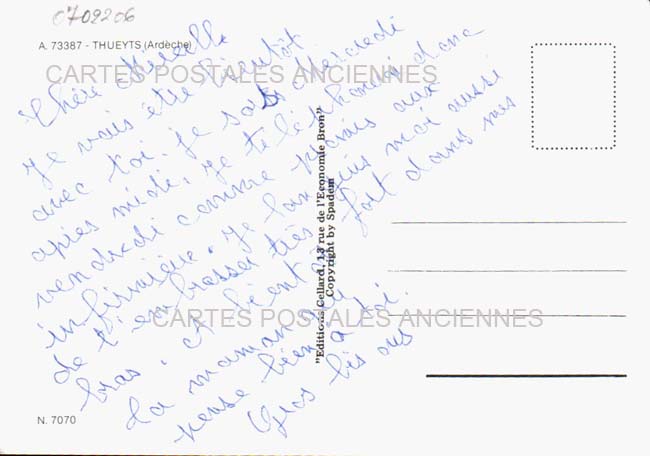 0709206
A. 73387 - THUEYTS (Ardèche)
CARTES POSTALES ANCIENNES
Chère Mireille
Je vais être bientôt
avec toi. Je sors Mercredi
après midi. Je téléphonerai donc
vendredi comme j'irais aux
infirmière. Je suis moi aussi
de t'embrasser très fort dans mes
bras. A bientôt
ta maman qui
pense bien à toi.
Gros bisous
"Editions Cellard, 13 rue de l'Economie Bron"
Copyright by Spadem
CARTES POSTALES ANCIENNES
N. 7070